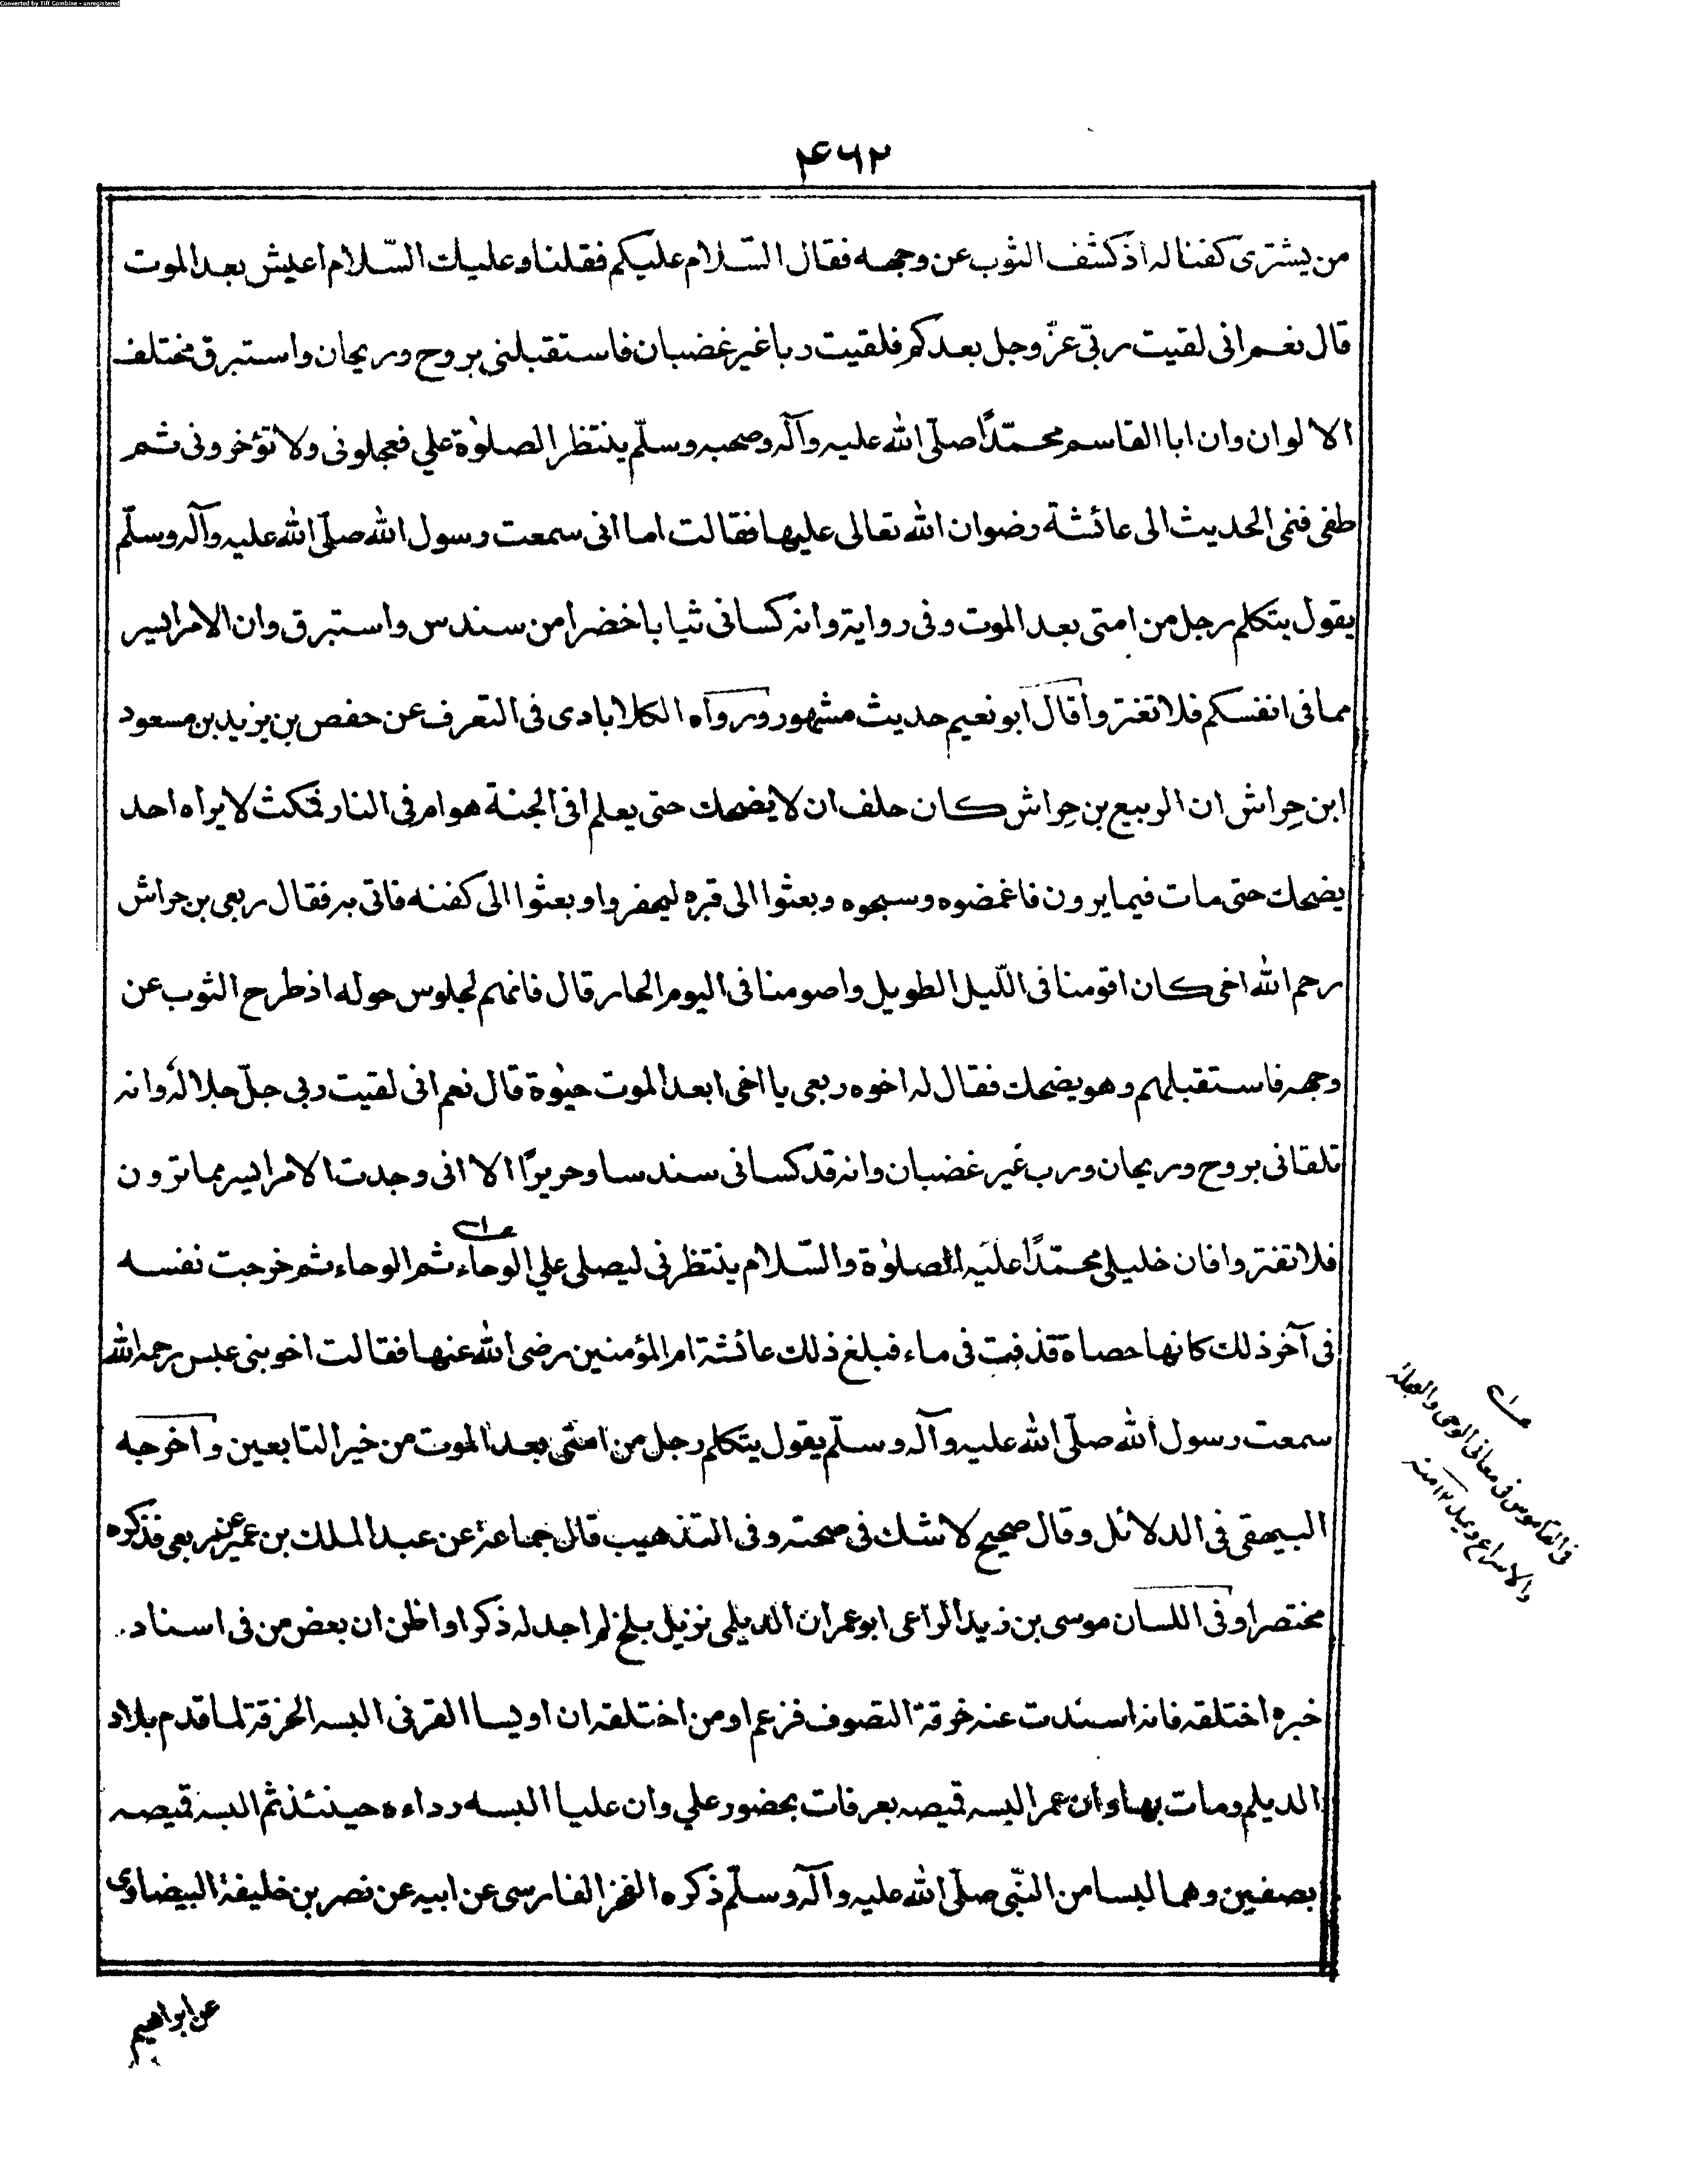 Converted by Tiff Combine - unregistered
۴۶۲
من یشتری کفنا له اذ کشف الثوب عن وجهه فقال السّلام علیکم فقلنا وعلیك السّلام اعیش بعد الموت
قال نعم انی لقیت ربّی عزّ وجل بعدکم فلقیت ربا غیر غضبان فاستقبلنی بروح وریحان واستبرق مختلف
الالوان وان ابا القاسم محمّدًا صلّی الله علیه وآله وصحبه وسلّم ینتظر الصلوٰة علي فعجلونی ولا تؤخرونی ثم
طفی فنمی الحدیث الی عائشة رضوان الله تعالی علیها فقالت اما انی سمعت رسول الله صلّی الله علیه وآله وسلّم
یقول یتکلم رجل من امتی بعد الموت وفی روایة وانه کسانی ثیابا خضرا من سندس واستبرق وان الامر ایسر
مما فی انفسکم فلا تغتروا قال ابو نعیم حدیث مشهور ورواه الکلابادی فی التعرف عن حفص بن یزید بن مسعود
ابن حِراش ان الربیع بن حِراش کان حلف ان لا یضحك حتی یعلم افی الجنة هو ام فی النار فمکث لا یراه احد
یضحك حتی مات فیما یرون فاغمضوه وسبحوه وبعثوا الی قبره لیحفر واوبعثوا الی کفنه فاتی به فقال ربعی بن حراش
رحم الله اخی کان اقومنا فی اللّیل الطویل واصومنا فی الیوم الحار قال فانهم لجلوس حوله اذ طرح الثوب عن
وجهه فاستقبلهم وهو یضحك فقال له اخوه ربعی یا اخی ابعد الموت حیٰوة قال نعم انی لقیت ربی جلّ جلاله وانه
تلقانی بروح وریحان ورب غیر غضبان وانه قد کسانی سندسا وحریرًا الا انی وجدت الامر ایسر مما ترون
فلا تغتروا فان خلیلی محمّدًا علیه الصلوٰة والسّلام ینتظرنی لیصلی علي الوحاء ثم الوحاء ثم خرجت نفسه
فی آخر ذلك کانها حصاة قذفت فی ماء فبلغ ذلك عائشة ام المؤمنین رضی الله عنها فقالت اخو بنی عبس رحمه الله
سمعت رسول الله صلّی الله علیه وآله وسلّم یقول یتکلم رجل من امتی بعد الموت من خیر التابعین واخرجه
البیهقی فی الدلائل وقال صحیح لا شك فی صحته وفی التذهیب قال جماعة عن عبد الملك بن عمیر عن ربعی فذکره
مختصرا وفی اللسان موسی بن زید الراعی ابو عمران الدیلمی نزیل بلخ لم اجد له ذکرا واظن ان بعض من فی اسناد
خبره اختلقه فانه اسندت عنه خرقة التصوف فزعم او من اختلقه ان اویسا القرنی البسه الخرقة لما قدم بلاد
الدیلم ومات بها وان عمر البسه قمیصه بعرفات بحضور علي وان علیا البسه رداءه حینئذ ثم البسه قمیصه
بصفین وهما لبسا من النّبی صلّی الله علیه وآله وسلّم ذکره الفخر الفارسی عن ابیه عن نصر بن خلیفة البیضاوی
فی القاموس فی معانی الوحی والعجلة
والاسراع ویمد ۱۲ منه
عن ابراهیم